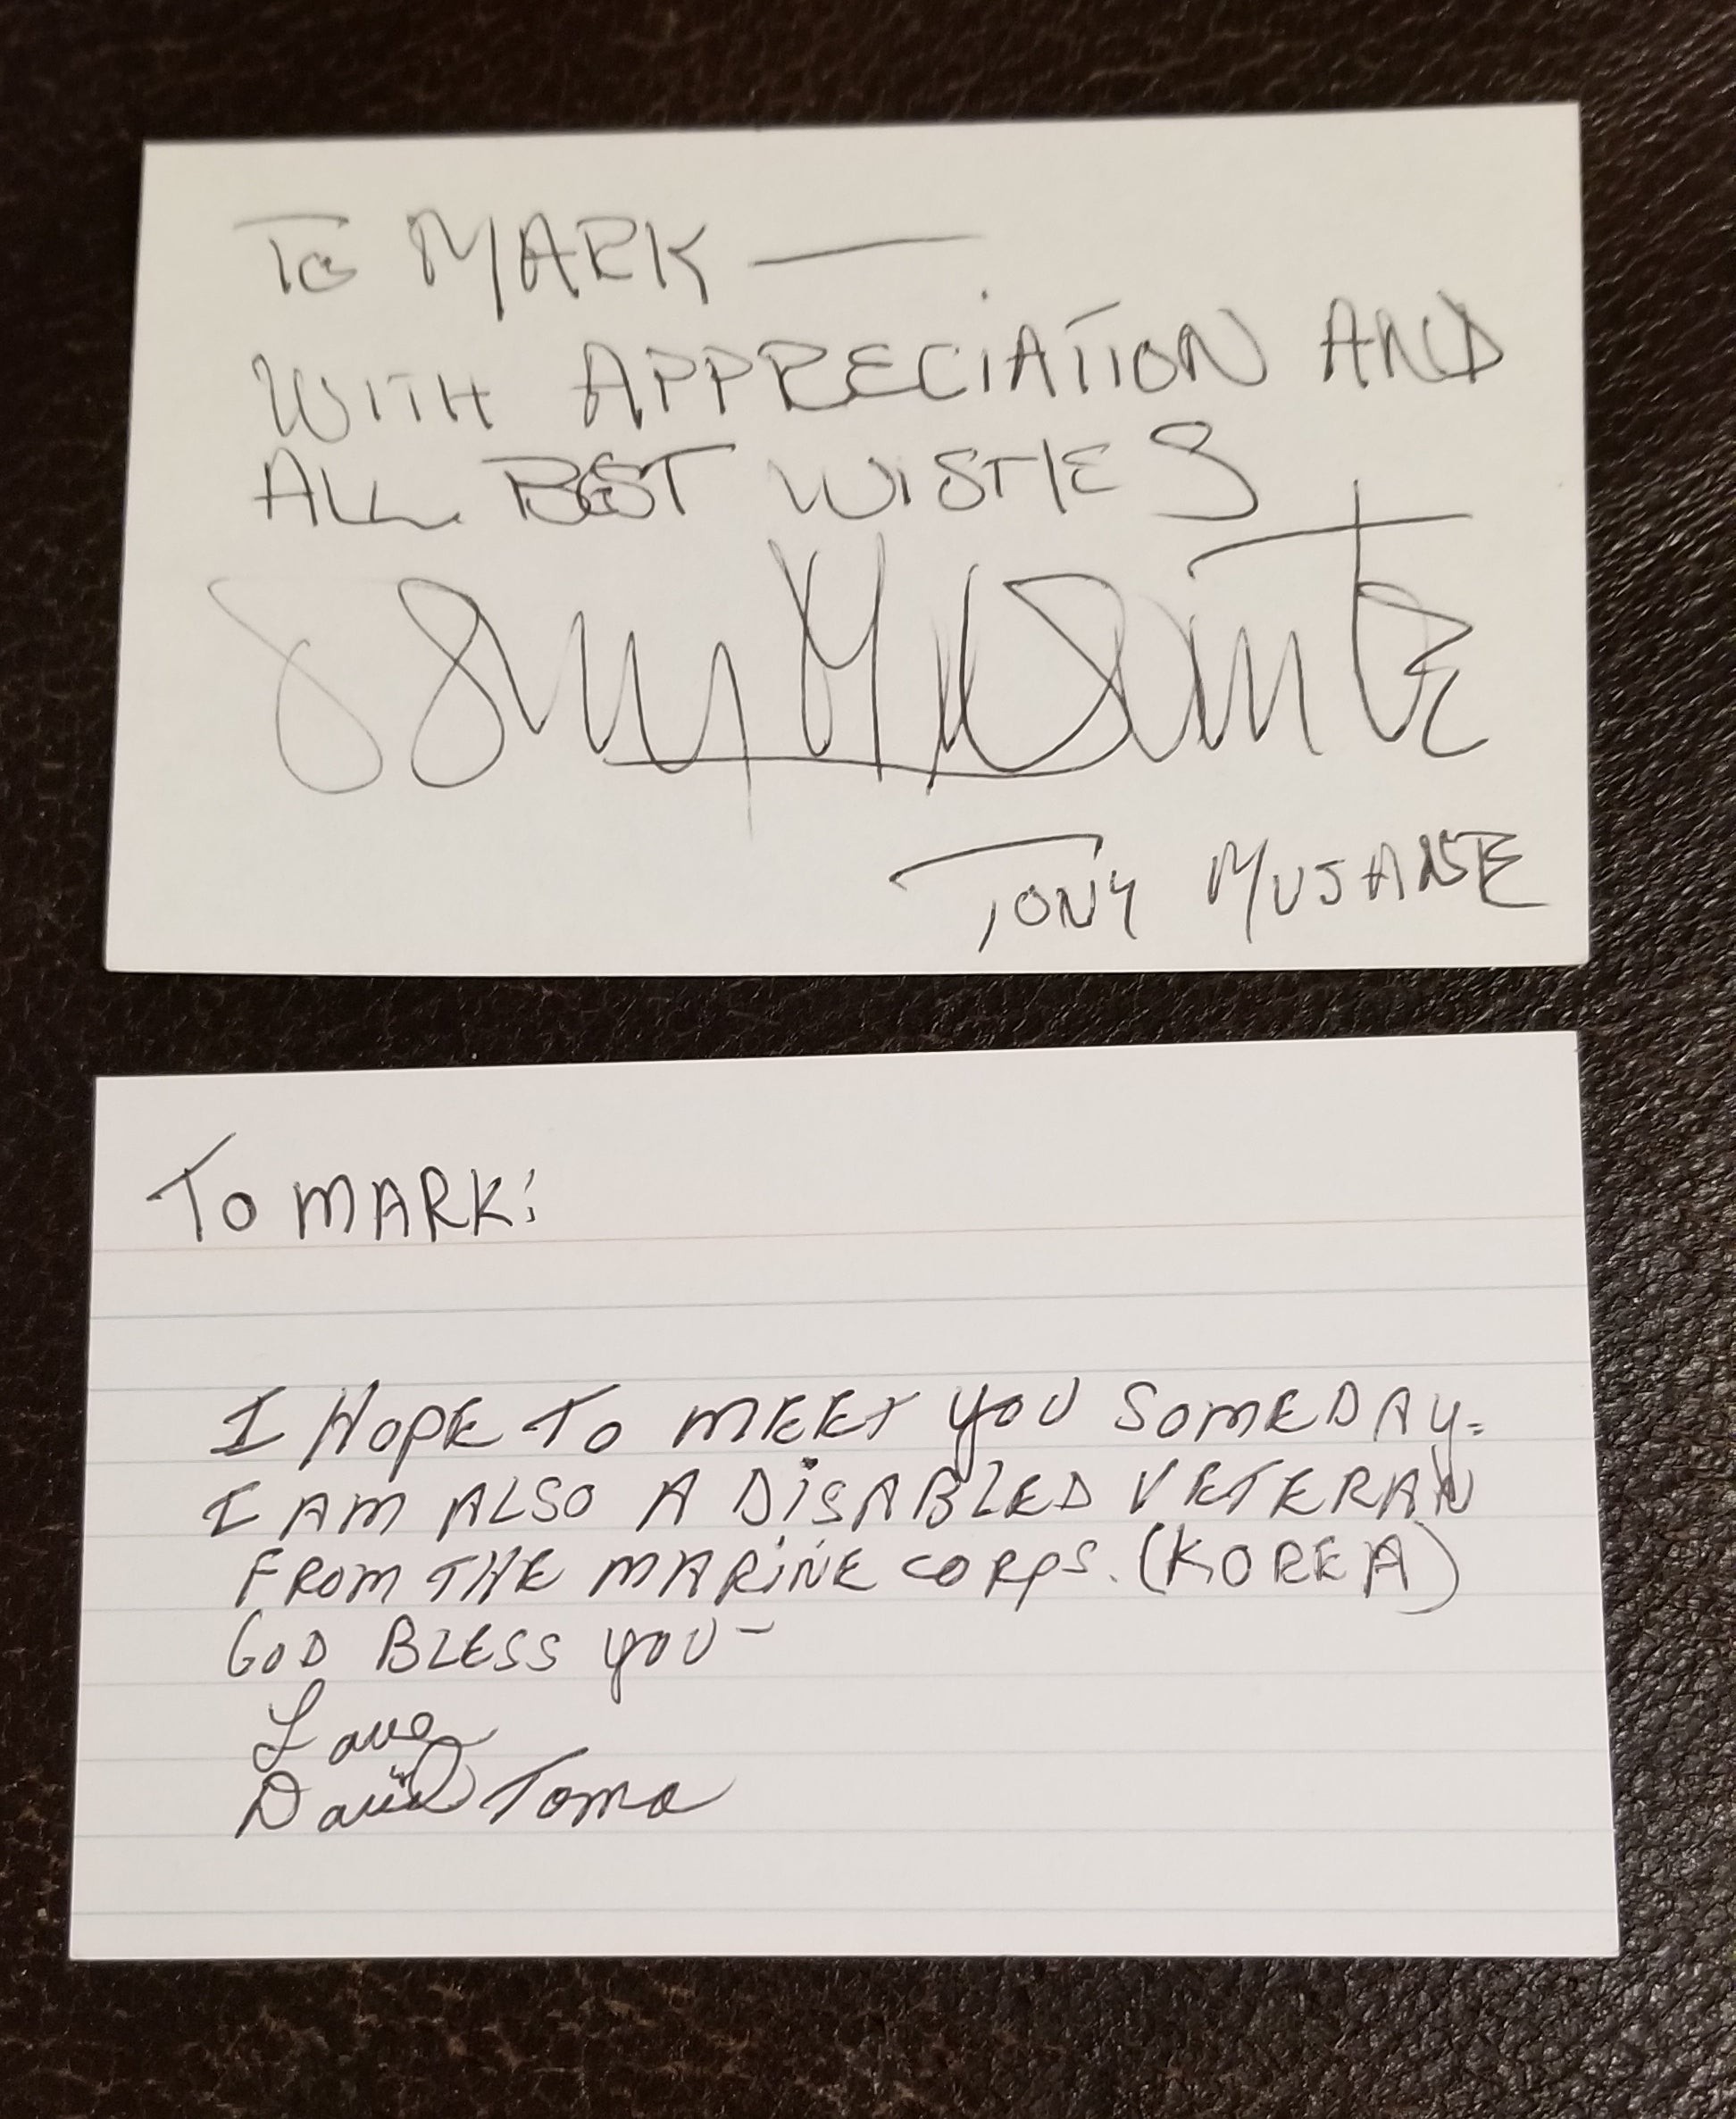 To MARK —
WITH APPRECIATION AND
ALL BEST WISHES
Tony Musante
TONY MUSANTE
To MARK:
I HOPE TO MEET YOU SOMEDAY.
I AM ALSO A DISABLED VETERAN
FROM THE MARINE CORPS. (KOREA)
GOD BLESS YOU-
Love
David Toma